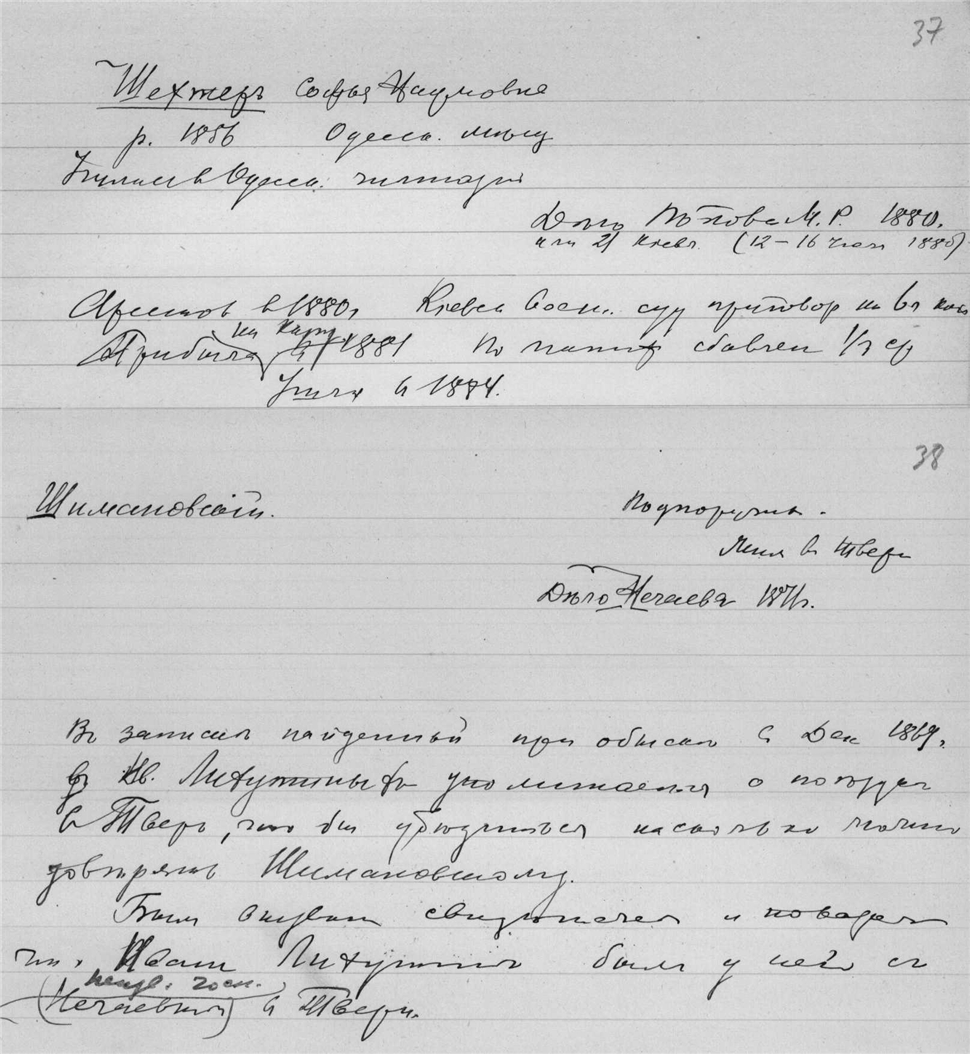 37
Шехтеръ Софья Наумовна
р. 1856 Одесса. мѣщ
Училась в Одесс. гимназіи
Дѣло Попова М. Р. 1880.
или 21 Кіевѣ (12–16 іюля 1880)
Арестов в 1880г Кіевск Воен. суд приговор на 6 л кат
на Кару
Прибыла в 1881 По маниф сбавлен 1/3 ср
в 1884.
38
Шимановскій.
Подпоручик.
Жил в Твери
Дѣло Нечаева 1871г.
Въ записк найденный при обыскѣ в Дек 1869г
у Ив. Лихутина упоминается о поѣздкѣ
в Тверь, что бы убѣдиться насколько можно
довѣрять Шимановскому.
Был вызван свидѣтелем и показал
что Иван Лихутин был у него съ
неизв. госп.
(Нечаевым) в Твери.